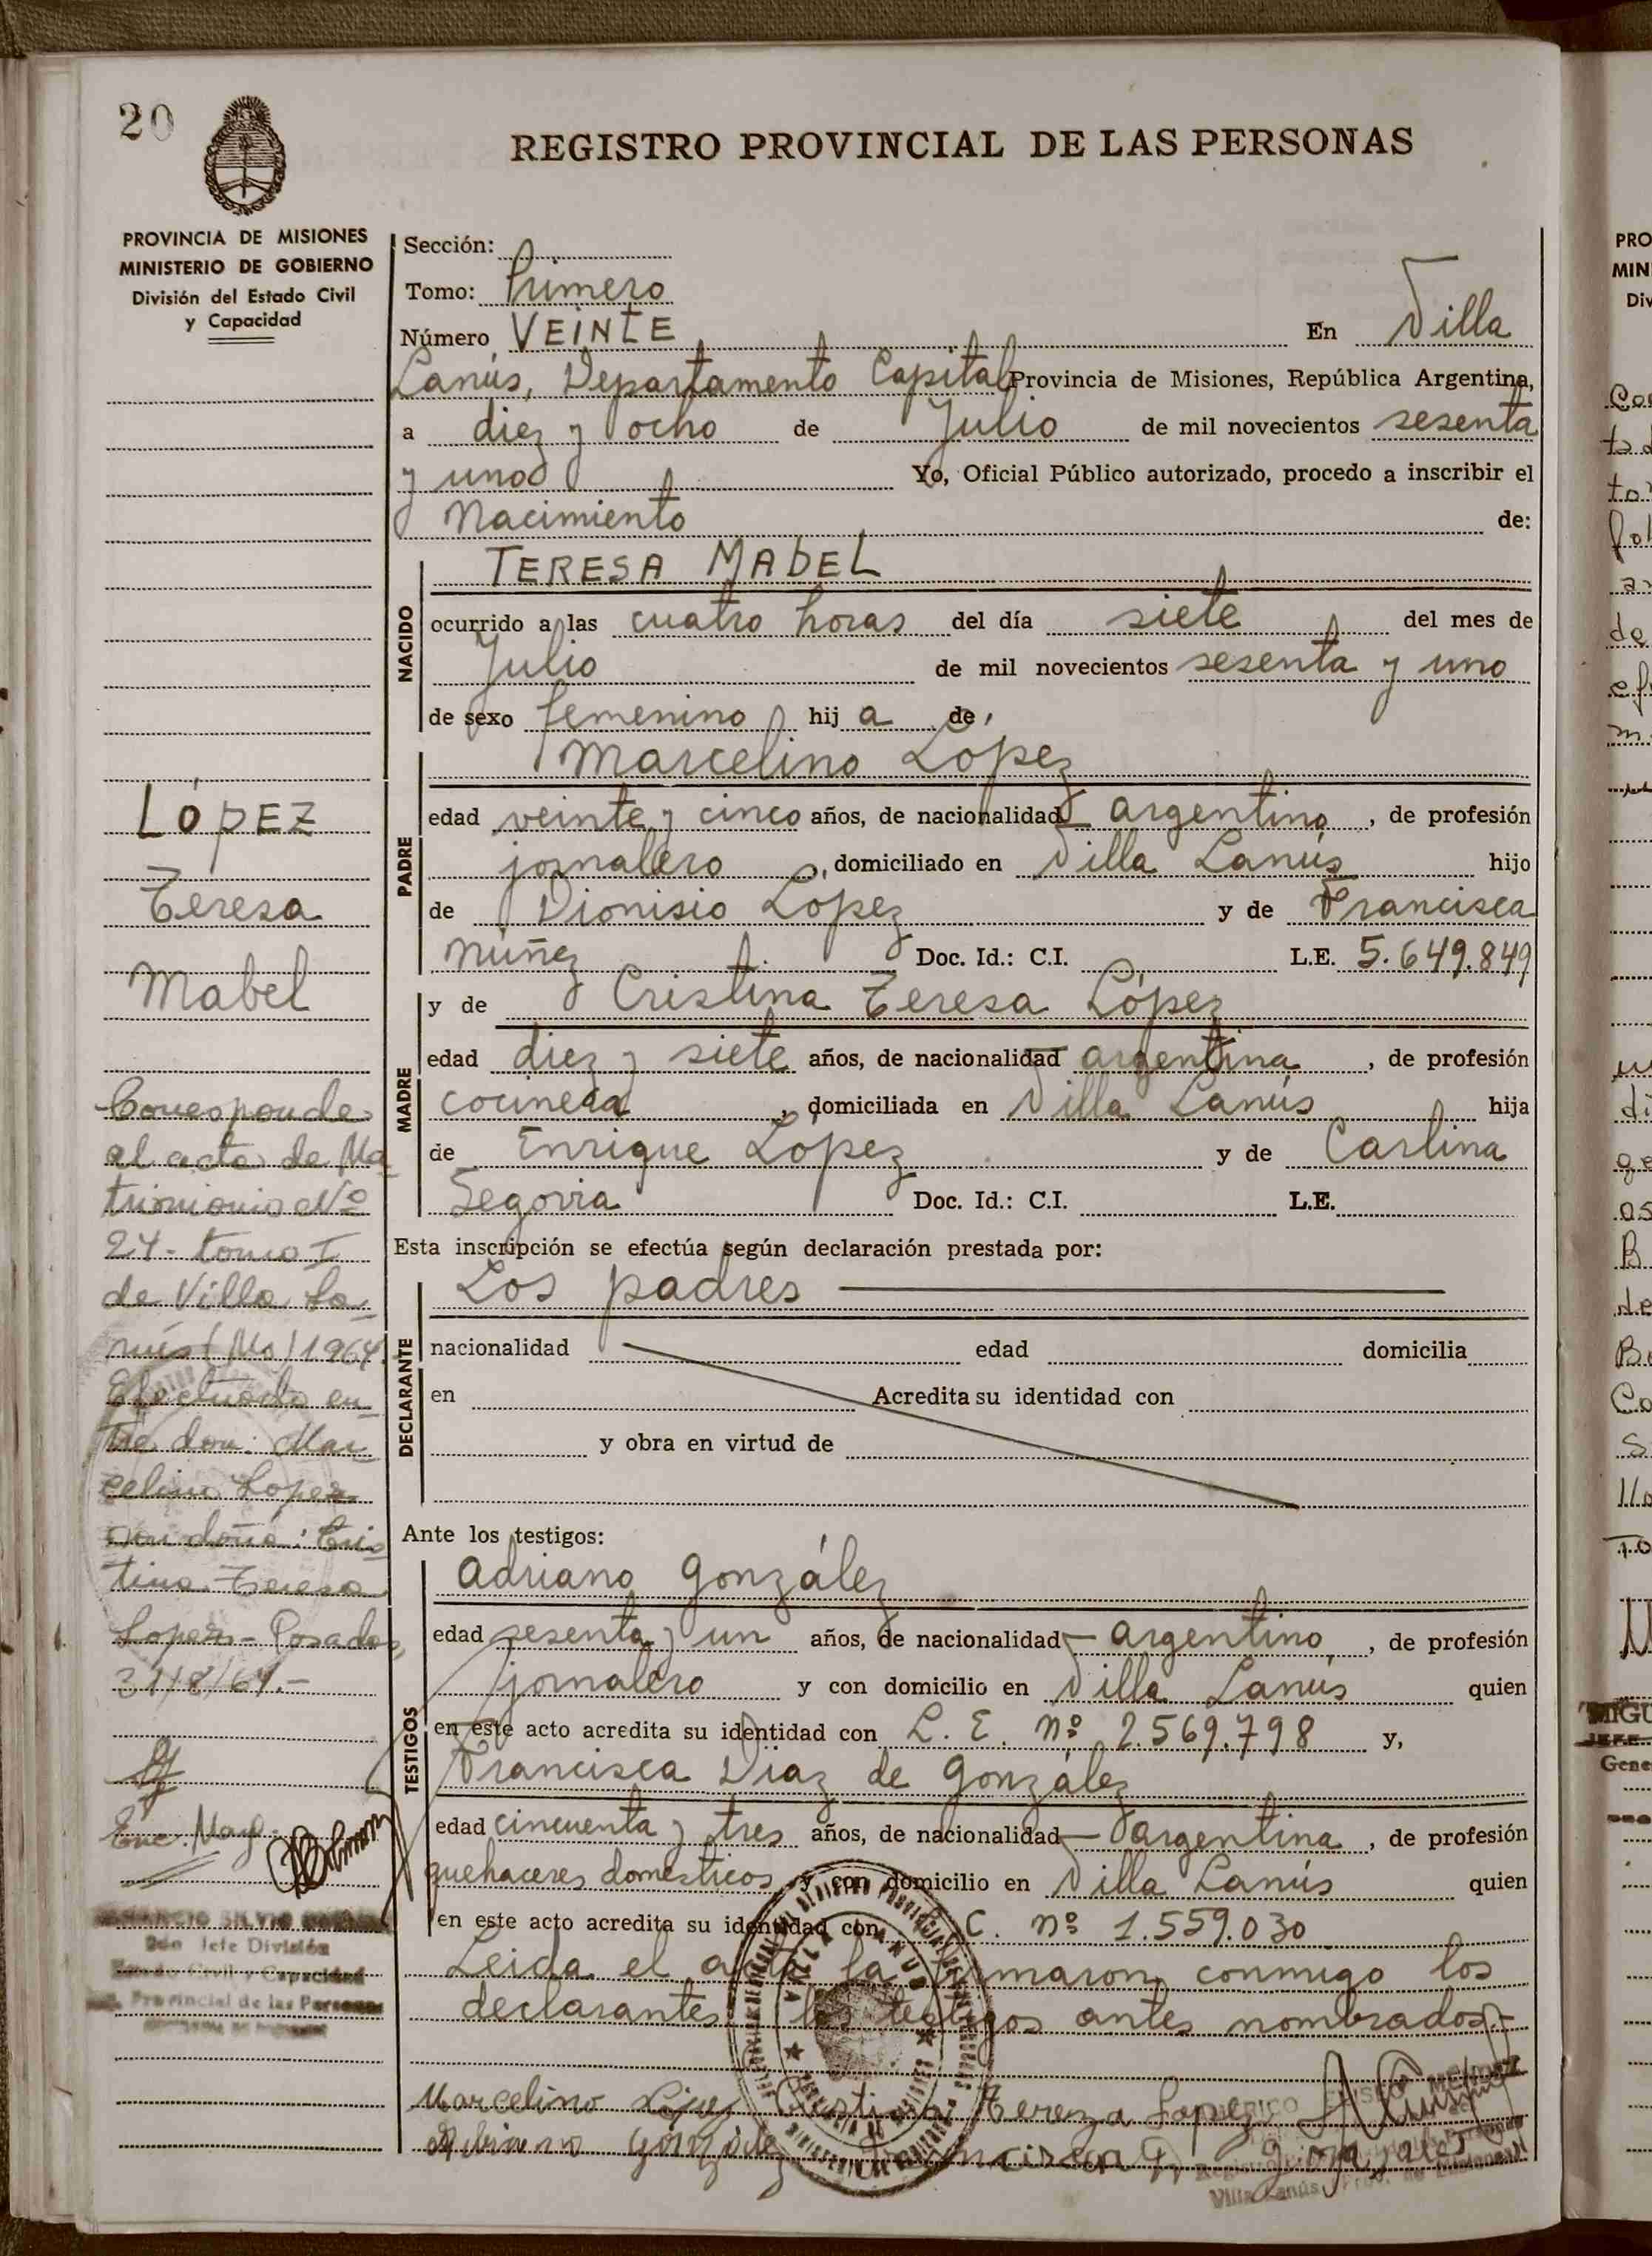 20
REGISTRO PROVINCIAL DE LAS PERSONAS
PROVINCIA DE MISIONES
MINISTERIO DE GOBIERNO
División del Estado Civil
y Capacidad
Sección:
Tomo: Primero
Número VEINTE En Villa
Lanús, Departamento Capital Provincia de Misiones, República Argentina,
a diez y ocho de Julio de mil novecientos sesenta
y uno Yo, Oficial Público autorizado, procedo a inscribir el
Nacimiento de:
NACIDO
TERESA MABEL
ocurrido a las cuatro horas del día siete del mes de
Julio de mil novecientos sesenta y uno
de sexo femenino hij a de
PADRE
Marcelino Lopez
edad veinte y cinco años, de nacionalidad argentino, de profesión
jornalero, domiciliado en Villa Lanús hijo
de Dionisio Lopez y de Francisca
Núñez Doc. Id.: C.I. L.E. 5.649.849
MADRE
y de Cristina Teresa López
edad diez y siete años, de nacionalidad argentina, de profesión
cocinera, domiciliada en Villa Lanús hija
de Enrique López y de Carlina
Segovia Doc. Id.: C.I. L.E.
Esta inscripción se efectúa según declaración prestada por:
DECLARANTE
Los padres
nacionalidad edad domicilia
en Acredita su identidad con
y obra en virtud de
Ante los testigos:
TESTIGOS
Adriano González
edad sesenta y un años, de nacionalidad argentino, de profesión
jornalero y con domicilio en Villa Lanús quien
en este acto acredita su identidad con L. E. Nº 2.569.798 y,
Francisca Diaz de González
edad cincuenta y tres años, de nacionalidad argentina, de profesión
quehaceres domésticos y con domicilio en Villa Lanús quien
en este acto acredita su identidad con C. nº 1.559.030
Leida el acta la firmaron conmigo los
declarantes los testigos antes nombrados.-
Marcelino Cristina Tereza Lopez
LÓPEZ
Teresa
Mabel
Corresponde
al acta de Ma
trimonio Nº
24- tomo I
de Villa La
nús (Mo) 1964.
Efectuado en
tre don: Mar
celino Lopez
con doña: Cris
tina Teresa
Lopez- Posadas,
31/8/64.-
Enc. May.
SILVIO
2do Jefe División
Estado Civil y Capacidad
Provincial de las Personas
ELISEO MENDEZ
Villa Lanús
PRO
MIN
Div
Gene